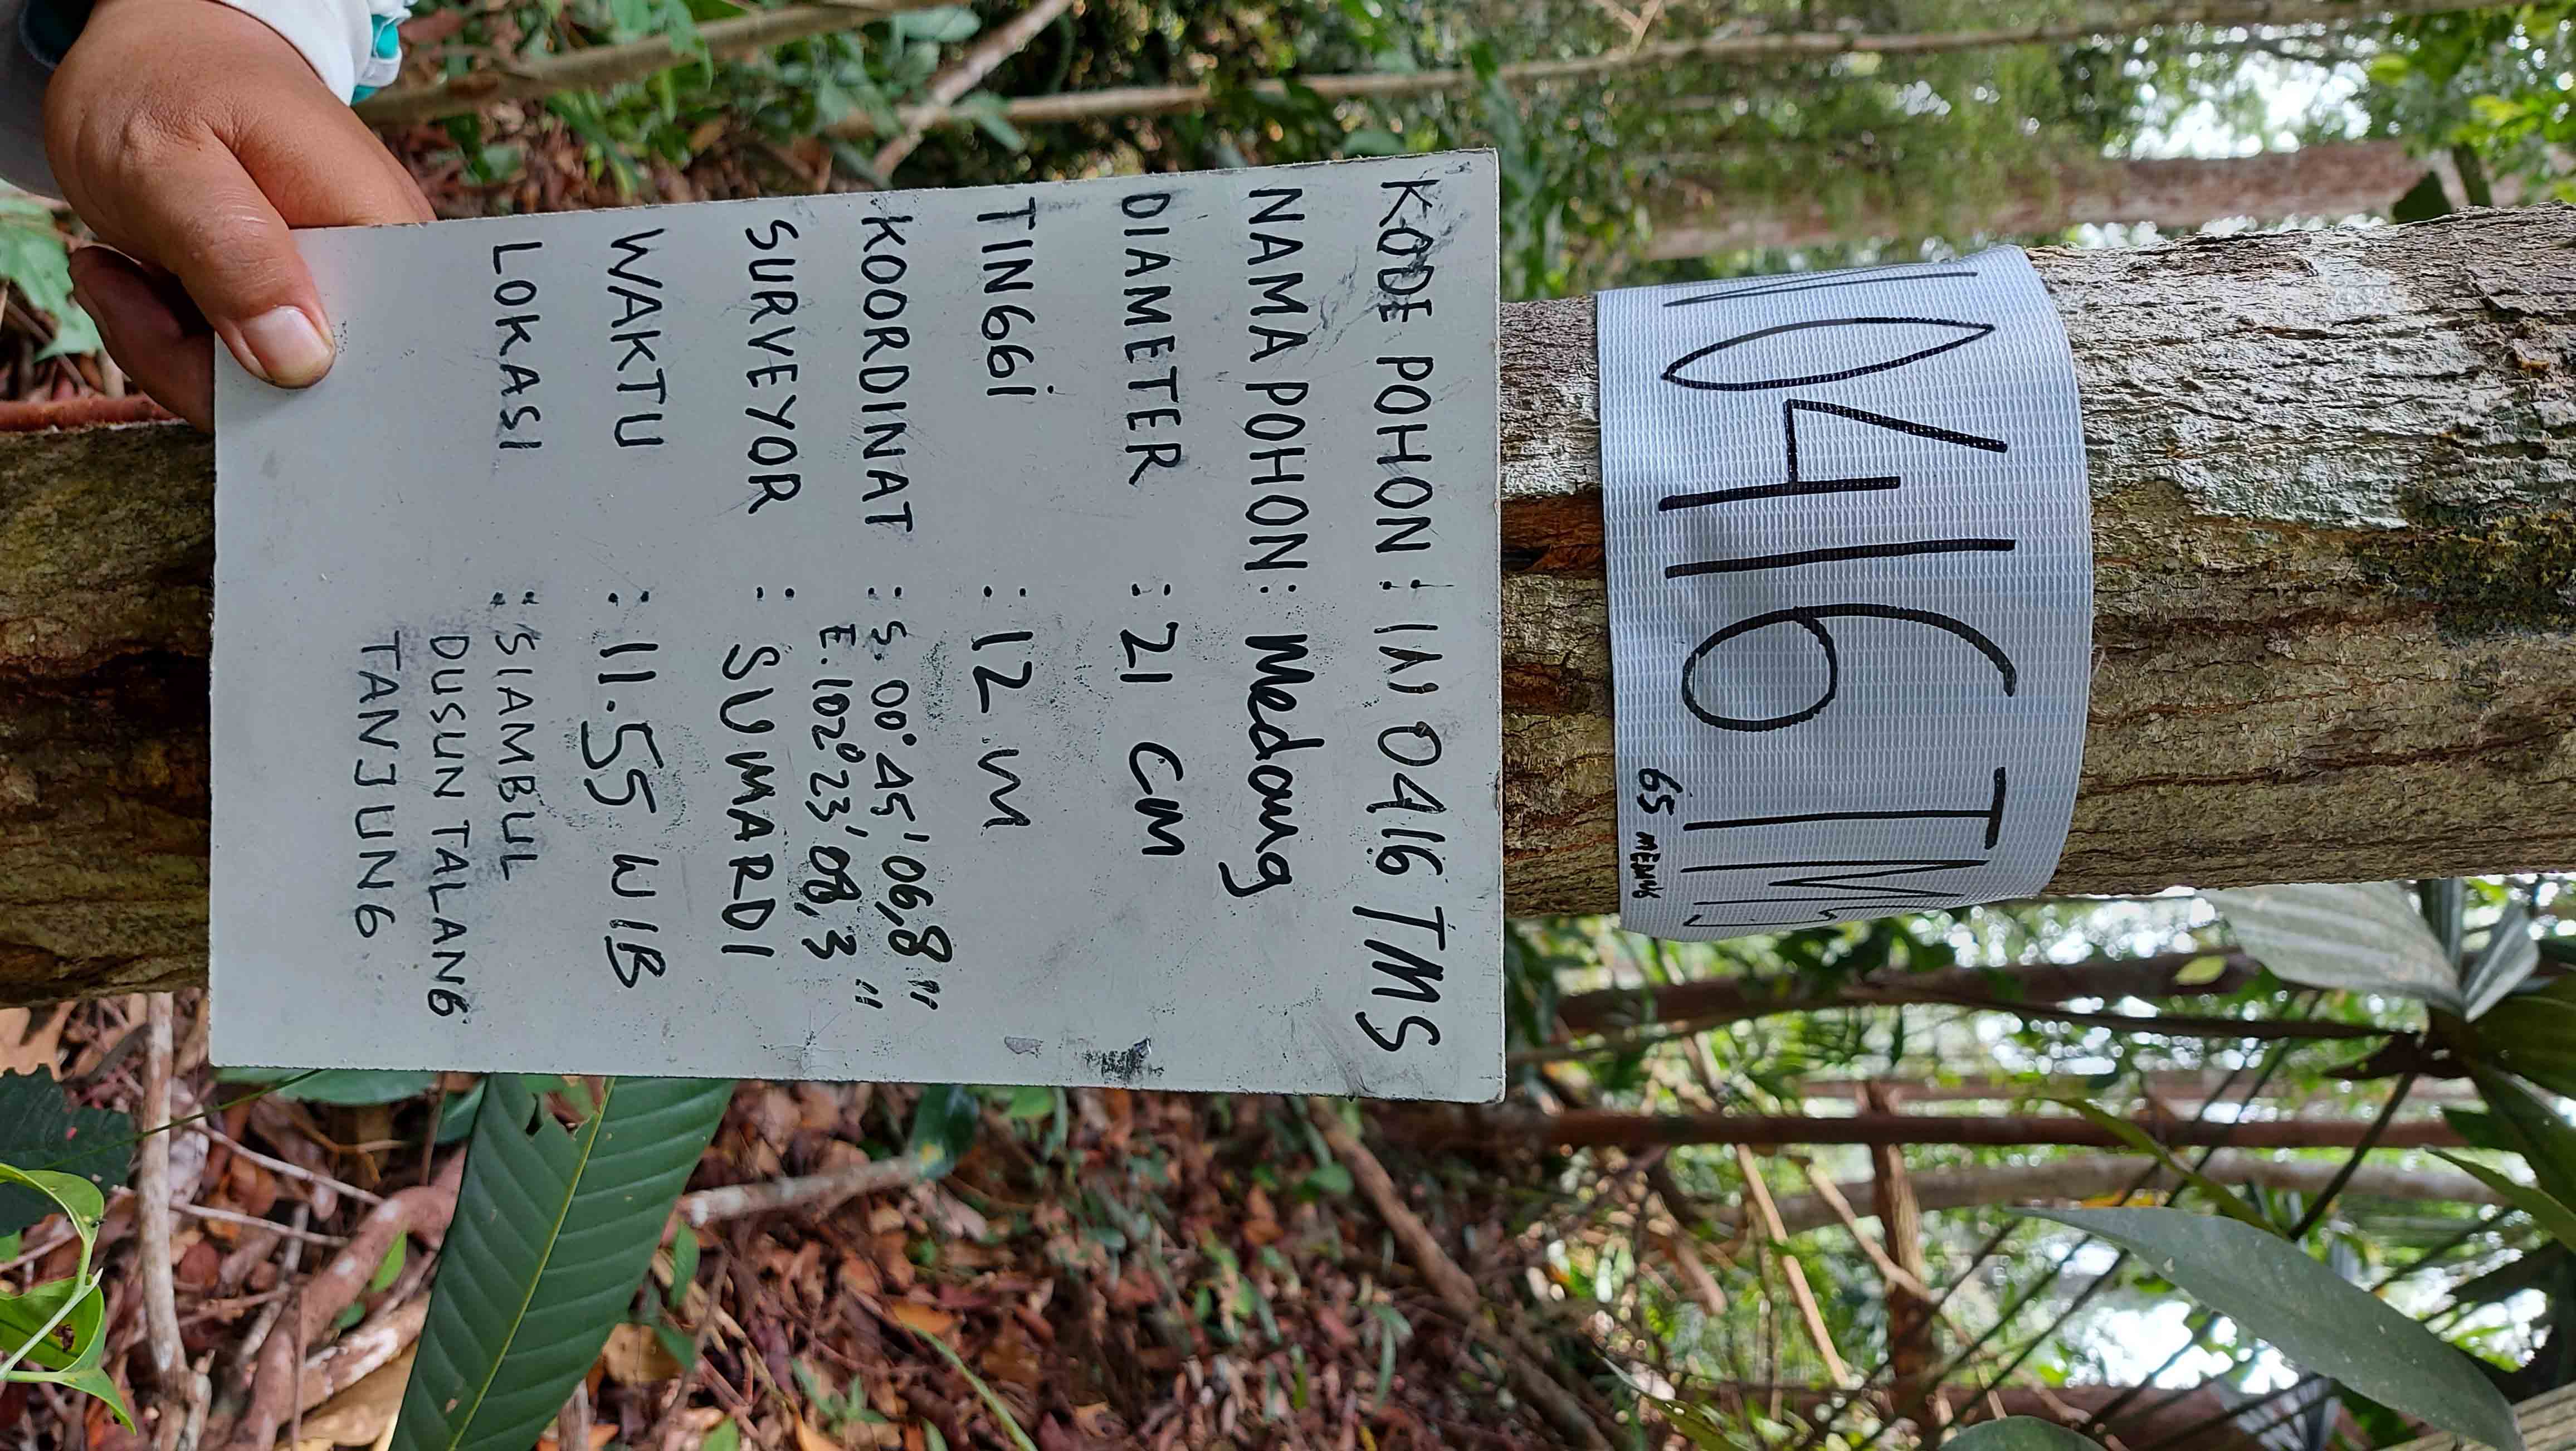 N0416 TMS
65 MEDANG
KODE POHON : IN 0416 TMS
NAMA POHON : Medang
DIAMETER : 21 CM
TINGGi : 12 m
KOORDINAT : S. 00° 45' 06,8"
E. 102° 23' 08,3"
SURVEYOR : SUMARDI
WAKTU : 11.55 WIB
LOKASI : SIAMBUL
DUSUN TALANG
TANJUNG